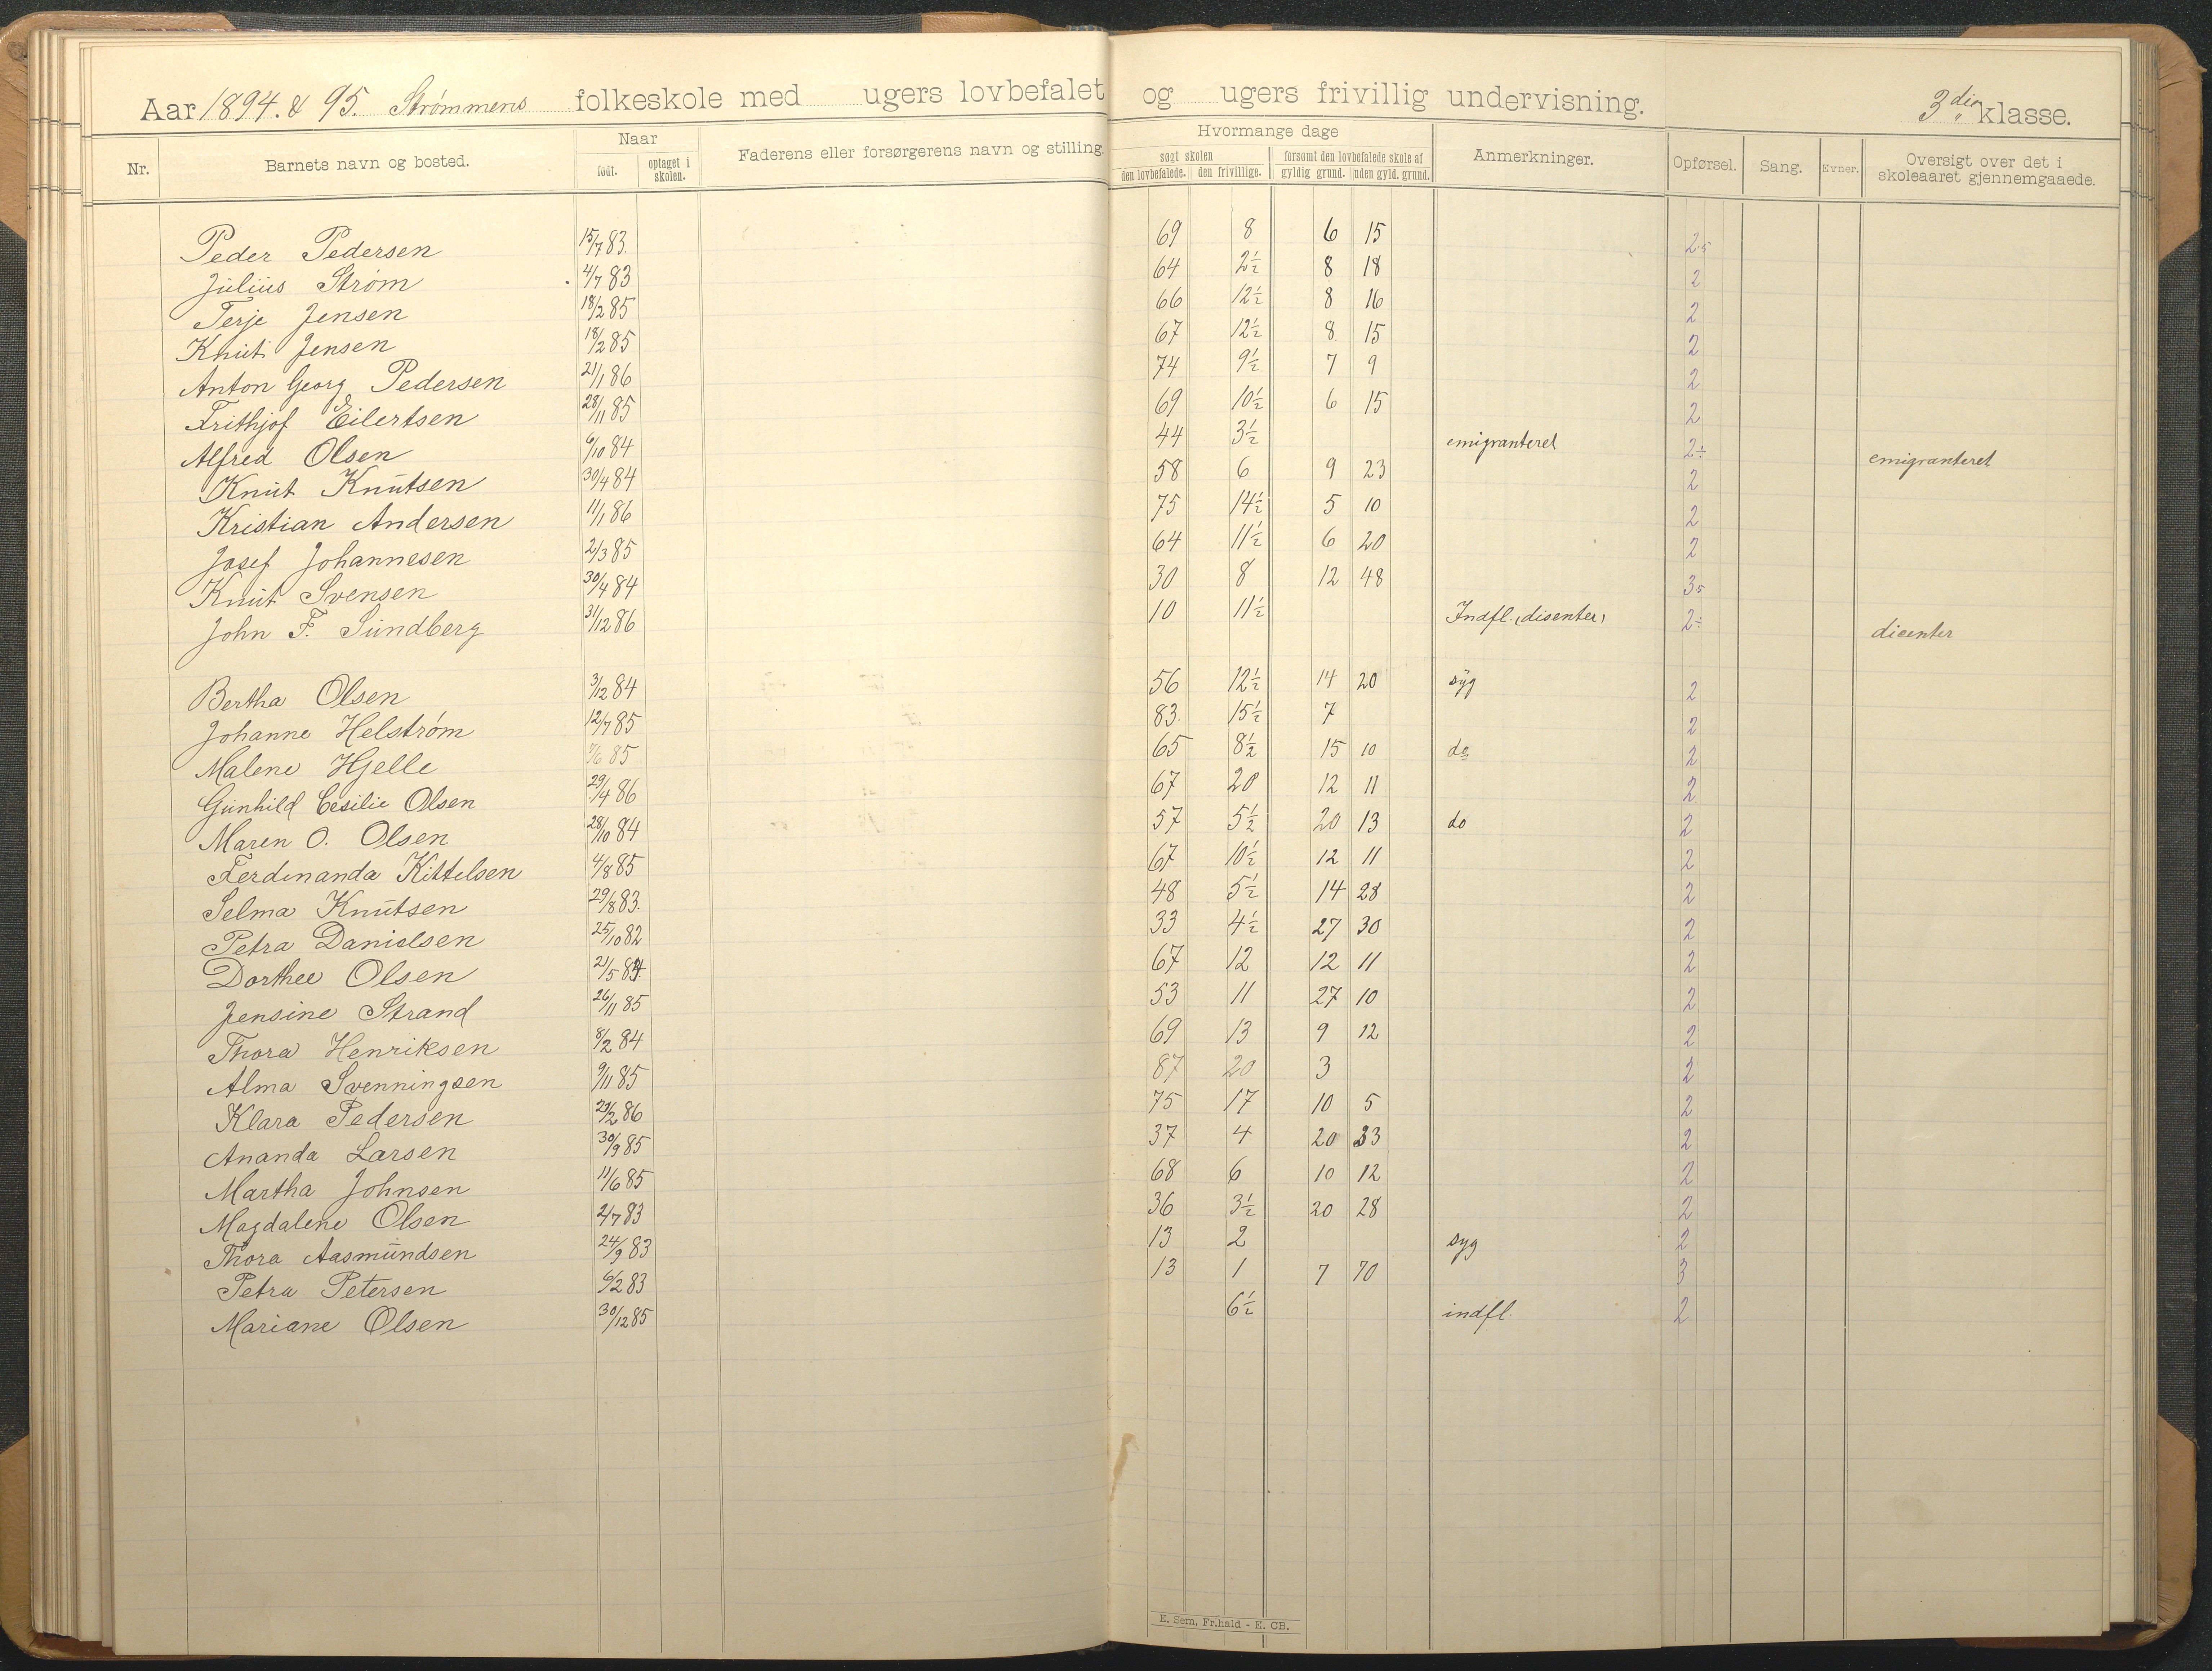 Aar 1894. & 95. Strømmens folkeskole med ugers lovbefalet og ugers frivillig undervisning. 3die klasse.
Nr. Barnets navn og bosted. Naar født. optaget i skolen. Faderens eller forsørgerens navn og stilling. Hvormange dage søgt skolen den lovbefalede. den frivillige. forsømt den lovbefalede skole af gyldig grund. uden gyld. grund. Anmerkninger. Opførsel. Sang. Evner. Oversigt over det i skoleaaret gjennemgaaede.
Peder Pedersen 15/7 83. 69 8 6 15 2.5
Julius Strøm 4/7 83 64 2½ 8 18 2
Terje Jensen 18/2 85 66 12½ 8 16 2
Knut Jensen 18/2 85 67 12½ 8 15 2
Anton Georg Pedersen 21/1 86 74 9½ 7 9 2
Frithjof Eilertsen 28/11 85 69 10½ 6 15 2
Alfred Olsen 6/10 84 44 3½ emigranteret 2÷ emigranteret
Knut Knutsen 30/4 84 58 6 9 23 2
Kristian Andersen 11/1 86 75 14½ 5 10 2
Josef Johannesen 2/3 85 64 11½ 6 20 2
Knut Svensen 30/4 84 30 8 12 48 3.5
John F. Sundberg 31/12 86 10 11½ Indfl. (disenter) 2÷ dicenter
Bertha Olsen 3/12 84 56 12½ 14 20 syg 2
Johanne Helstrøm 12/7 85 83. 15½ 7 2
Malene Hjelle 7/6 85 65 8½ 15 10 do 2
Gunhild Cesilie Olsen 29/4 86 67 20 12 11 2
Maren O. Olsen 28/10 84 57 5½ 20 13 do 2
Ferdinanda Kittelsen 4/8 85 67 10½ 12 11 2
Selma Knutsen 29/8 83. 48 5½ 14 28 2
Petra Danielsen 25/10 82 33 4½ 27 30 2
Dorthee Olsen 21/5 84 67 12 12 11 2
Jensine Strand 26/11 85 53 11 27 10 2
Thora Henriksen 8/2 84 69 13 9 12 2
Alma Svenningsen 9/11 85 87 20 3 2
Klara Pedersen 21/2 86 75 17 10 5 2
Ananda Larsen 30/9 85 37 4 20 33 2
Martha Johnsen 11/6 85 68 6 10 12 2
Magdalene Olsen 2/7 83 36 3½ 20 28 2
Thora Aasmundsen 24/9 83 13 2 syg 2
Petra Petersen 6/2 83 13 1 7 70 3
Mariane Olsen 30/12 85 6½ indfl. 2
E. Sem, Fr.hald - E. CB.